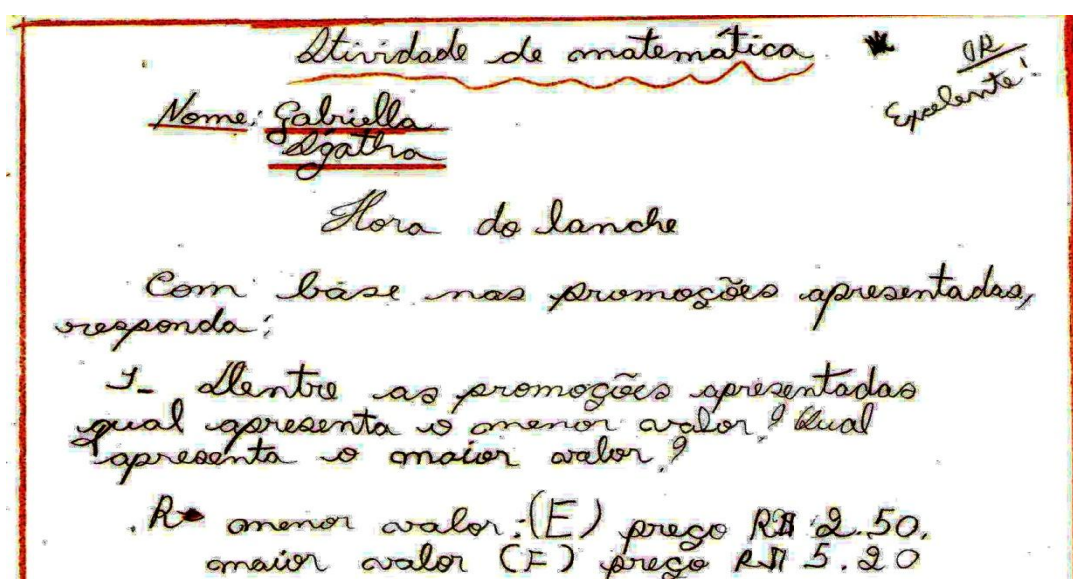 Atividade de matemática
OR
Excelente!
Nome: Gabriella
Agatha
Hora do lanche
Com báse nas promoções apresentadas,
responda:
1- Dentre as promoções apresentadas
qual apresenta o menor valor? Qual
apresenta o maior valor?
R menor valor: (E) preço R$ 2.50.
maior valor (F) preço R$ 5.20